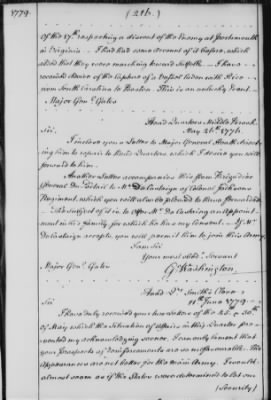 1779.
(216.)
of the 17th respecting a descent of the Enemy at Portsmouth
in Virginia. I had had some account of it before, which
added that they were marching toward Suffolk. I have
received News of the capture of a Vessel laden with Rice
from South Carolina to Boston. This is an unlucky Event.
Major Genl. Gates
Head Quarters Middle Brook
May 26th 1779.
Sir
I inclose you a Letter to Major General Heath directing
him to repair to Head Quarters which I desire you will
forward to him.
Another Letter accompanies this from Brigadier
General Du Portail to Mr. De Cambray of Colonel Jacksons
Regiment, which you will also be pleased to have forwarded.
The subject of it is to offer Mr. an appoint-
ment in his family, for which he has my consent. If Mr.
accepts you will permit him to join this Army.
I am Sir
Your most Obed. Servant
G. Washington
Major Genl. Gates
Head Qrs. Smith's Clove
11th June 1779.
Sir
I have duly received your two letters of the 25. & 30th
of May which the situation of affairs in this Quarter pre-
vented my acknowledging sooner. I am sorry to learn that
your prospects of reinforcements are so unfavorable. The
appearances are not better for the main Army. I would
almost seem as if the States were determined to let our
(Security)